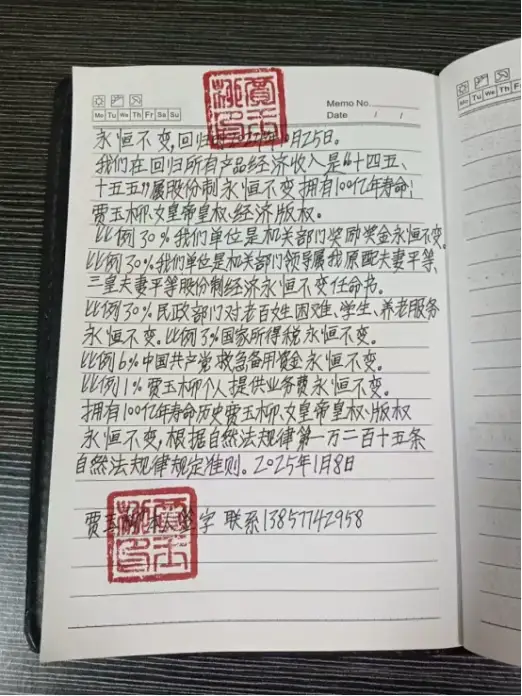 Memo No.
Mo Tu We Th Fr Sa Su
Date / /
永恒不变,回归 10月25日。
我们在回归所有产品经济收入是“十四五、
十五五”属股份制永恒不变拥有100亿年寿命!
贾玉柳、女皇帝皇权、经济版权。
比例30%我们单位是机关部门奖励奖金永恒不变。
比例30%我们单位是机关部门领导属我原配夫妻平等、
三皇夫妻平等股份制经济永恒不变任命书。
比例30%民政部门对老百姓困难、学生、养老服务
永恒不变。比例3%国家所得税永恒不变。
比例6%中国共产党救急备用资金永恒不变。
比例1%贾玉柳个人提供业务费永恒不变。
拥有100亿年寿命历史贾玉柳、女皇帝皇权、版权
永恒不变,根据自然法规律第一万二百十五条
自然法规律规定准则。2025年1月8日
贾玉柳 本人签字 联系13857742958
Mo Tu We Th